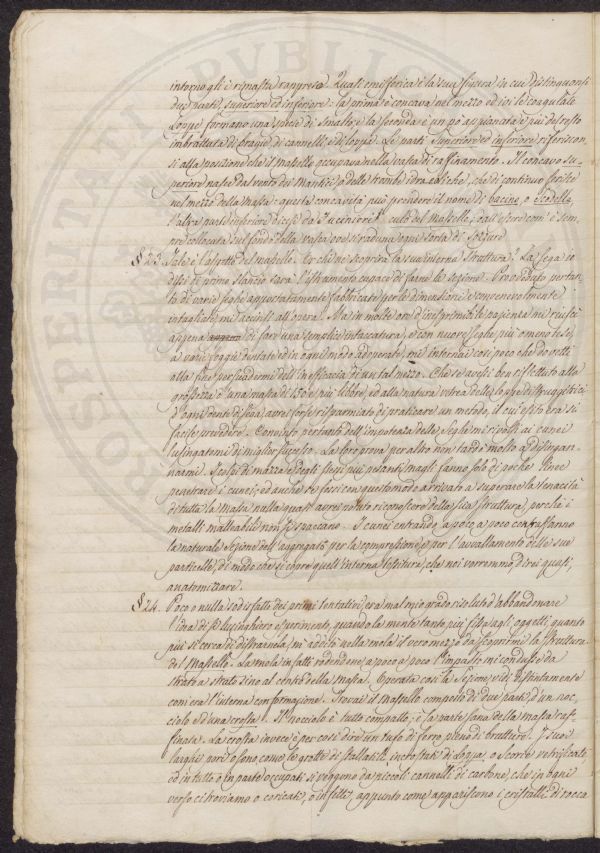 intorno gli è rimasta rappresa. Quasi emisferica è la sua figura in cui distinguonsi
due parti, superiore ed inferiore: la prima è concava nel mezzo ed ivi le coagulate
Loppe formano una specie di smalto, e la seconda è un po' appianata e più del resto
imbrattata di bragie, di cannelli e di loppa. Le parti superiore ed inferiore riferiscon-
si alla posizione che il Masello occupava nella vasca di raffinamento. Il concavo su-
periore nasce dal vento dei Mantici, o delle trombe idrauliche, che di continuo ferisce
nel mezzo della massa: questa concavità può prendere il nome di bacino, o Scodella,
l'altra parte inferiore dicesi da Fucinieri culo del Masello, dall'essere com'è sem-
pre collocata sul fondo della vasca ove si raduna ogni sorta di sozzure
§ 23. Tale è l'aspetto del Masello. Or chi ne scoprirà la sua interna struttura? La sega io
dissi di primo slancio sarà l'istrumento capace di farne la sezione. Proveduto pertan-
to di varie seghe appostatamente fabbricate per le dimensioni e convenevolmente
intagliate, mi accinsi all'opera. Ma in molte ore d'incredibile pazienza mi riuscì
appena di fare una semplice intaccatura, e con nuove seghe più o meno tese,
a varie foggie dentate ed in ogni modo adoperate, mi internai così poco che dovetti
alla fine persuadermi dell'inefficacia di un tal mezzo. Che se avessi ben riflettuto alla
grossezza d'una massa di 150 e più libbre, ed alla natura vitrea delle loppe distruggitrici
d'ogni dente di sega, avrei forse risparmiato di praticare un metodo, il cui esito era sì
facile prevedere. Convinto pertanto dell'impotenza delle seghe mi rivolsi ai cunei
lusingatomi di miglior successo. La loro prova per altro non tardò molto a disingan-
narmi. I colpi di mazza e degli stessi più pesanti magli fanno solo di poche linee
penetrare i cunei; ed anche se fossi con questo modo arrivato a superare la tenacità
di tutta la massa nulla quasi avrei potuto riconoscere della sua struttura, perchè i
metalli malleabili non si spaccano. I cunei entrando a poco a poco contraffanno
la naturale sezione dell'aggregato per la compressione, e per l'avvallamento delle sue
particelle, di modo che si copre quell'interna tessitura, che noi vorremmo direi quasi,
anatomizzare.
§ 24. Poco o nulla sodisfatto dei primi tentativi, era mal mio grado risoluto d'abbandonare
l'idea di sì lusinghiero esperimento, quando la mente tanto più fissa agli oggetti, quanto
più si cerca di distraerla, mi additò nella mola il vero mezzo da scoprirne la struttura
del Masello. La mola infatti rodendone a poco a poco l'impasto mi condusse da
strato a strato sino al centro della massa. Operata così la sezione, vidi distintamente
com'era l'interna conformazione. Trovai il Masello composto di due parti, d'un noc-
ciolo ed una crosta. Il nocciolo è tutto compatto, e fa parte sana della massa raf-
finata. La crosta invece è per così dire un tufo di ferro, pieno di brutture. I suoi
larghi pori o sono come le grotte di stallatiti incrostati di Loppa, o Scorie vetrificate,
ed in tutto o in parte occupati si veggono da piccoli cannelli di carbone, che in ogni
verso ci troviamo o coricati, o infitti, appunto come appariscono i cristalli di rocca